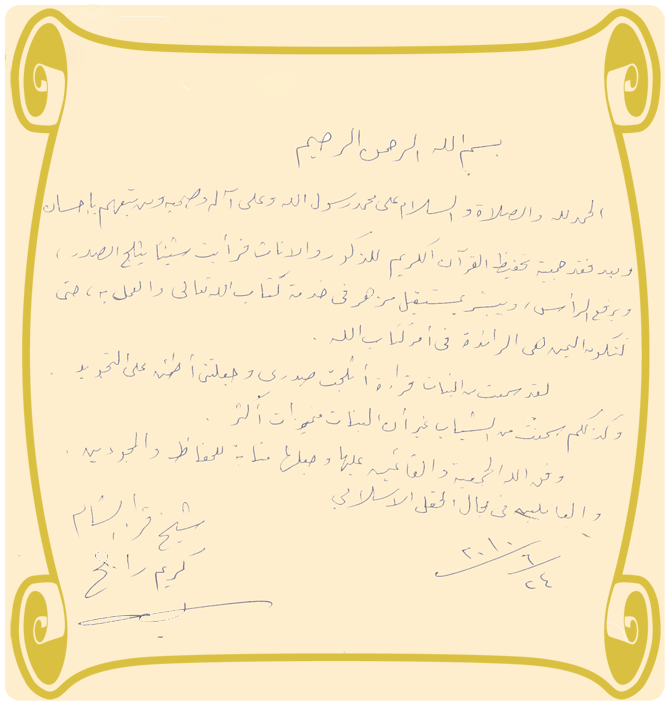 بسم الله الرحمن الرحيم
الحمد لله والصلاة والسلام على محمد رسول الله وعلى آله وصحبه ومن تبعهم بإحسان
وبعد فقد جمعية تحفيظ القرآن الكريم للذكور والاناث فرأيت شيئا يثلج الصدر ،
ويرفع الرأس ، ويبشر بمستقبل مزهر في خدمة كتاب الله تعالى والعمل به ، حتى
لتكون اليمن هي الرائدة في أمر كتاب الله .
لقد سمعت من البنات قراءة أثلجت صدري وجعلتني أطمئن على التجويد .
وكذلكم سمعت من الشباب غير أن البنات مميزات أكثر .
وفق الله الجمعية والقائمين عليها وجعلها منارة للحفاظ والمجودين .
والعاملين في مجال الحقل الاسلامي
شيخ قراء الشام
كريم راجح
٢٤/٦/٢٠١٠